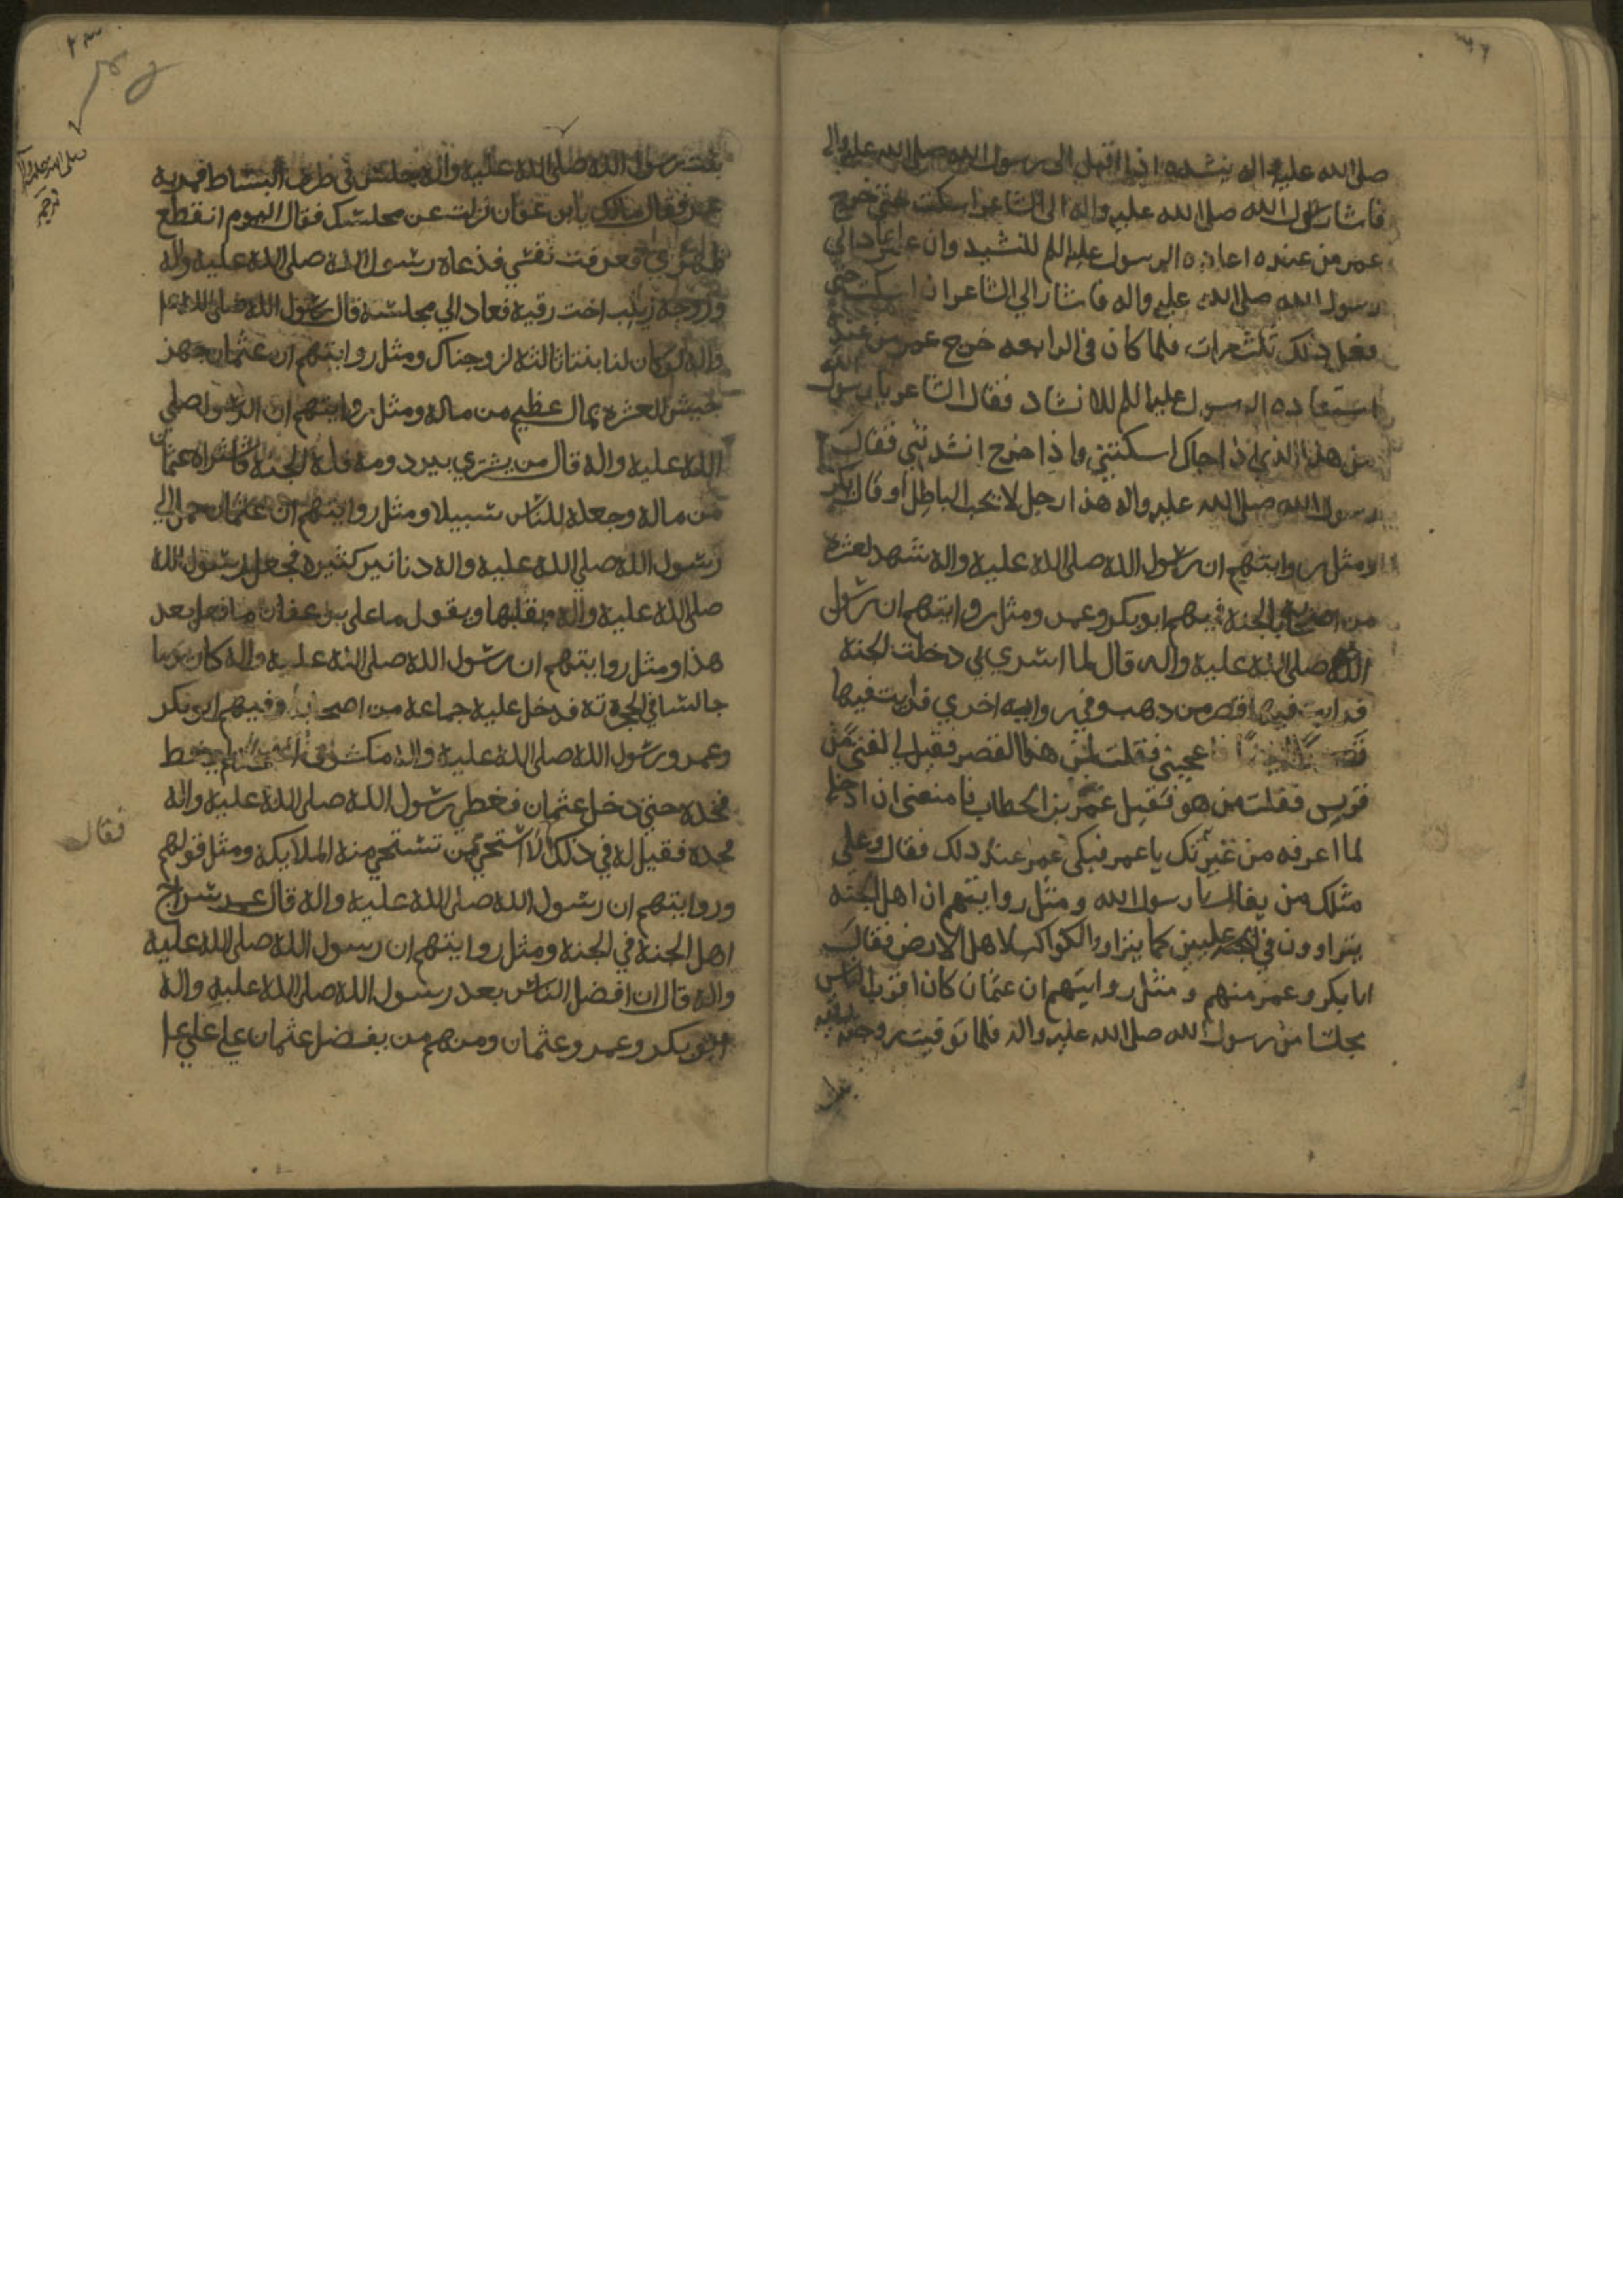 صلى الله عليه واله ينشده اذ اقبل الى رسول الله صلى الله عليه واله
فاشار رسول الله صلى الله عليه واله الى الشاعر اسكت حتى خرج
عمر من عنده اعاده الرسول عليه السلم للنشيد وان عمر عاد الى
رسول الله صلى الله عليه واله فاشار الي الشاعر ان اسكت حتى
فعل ذلك ثلث مرات فلما كان في الرابعه خرج عمر من عنده
استعاده الرسول عليه السلم للانشاد فقال الشاعر يا رسول الله
من هذا الذي اذا جاك اسكتني واذا خرج انشدتني فقال
رسول الله صلى الله عليه واله هذا رجل لا يحب الباطل او قال
ومثل روايتهم ان رسول الله صلى الله عليه واله شهد لعشره
من اصحابه بالجنة فيهم ابو بكر وعمر ومثل روايتهم ان رسول
الله صلى الله عليه واله قال لما اسري بي دخلت الجنة
فرايت فيها قصر من ذهب وفي روايه اخري فرايت فيها
اعجبني فقلت لمن هذا القصر فقيل لي لفتى من
قريش فقلت من هو فقيل عمر بن الخطاب فما منعني ان ادخله
لما اعرفه من غيرتك يا عمر فبكى عمر عند ذلك فقال وعلي
مثلك من يغار يا رسول الله ومثل روايتهم ان اهل الجنه
يتراوون في عليين كما يتراوا الكواكب لاهل الارض فقال
ابا بكر وعمر منهم ومثل روايتهم ان عثمان كان اقرب الناس
مجلسا من رسول الله صلى الله عليه واله فلما توفيت زوجته رقيه
بنت رسول الله صلى الله عليه واله جلس في طرف البساط فمر به
عمر فقال مالك يا ابن عفان نزلت عن مجلسك فقال اليوم انقطع
ظهري فعرفت نفسي فدعاه رسول الله صلى الله عليه واله
وزوجه زينب اخت رقية فعاد الي مجلسه قال رسول الله صلى الله عليه
واله لو كان لنا بنتا ثالثة لزوجناك ومثل روايتهم ان عثمان جهز
جيش العشرة بمال عظيم من ماله ومثل روايتهم ان الرسول صلي
الله عليه واله قال من يشتري بير دومه فله الجنة فاشتراه عثمان
من ماله وجعله للناس سبيلا ومثل روايتهم ان عثمان حمل الي
رسول الله صلى الله عليه واله دنانير كثيرة فجعل رسول الله
صلى الله عليه واله يقلبها ويقول ما على بن عفان ما فعل بعد
هذا ومثل روايتهم ان رسول الله صلى الله عليه واله كان يوما
جالسا في حجرته فدخل عليه جماعة من اصحابه وفيهم ابو بكر
وعمر ورسول الله صلى الله عليه واله مكشوف
فخده حتي دخل عثمان فغطي رسول الله صلى الله عليه واله
فخده فقيل له في ذلك الا استحي ممن تستحي منه الملايكة ومثل قولهم
وروايتهم ان رسول الله صلى الله عليه واله قال عمر سراج
اهل الجنة في الجنة ومثل روايتهم ان رسول الله صلى الله عليه
واله قال ان افضل الناس بعد رسول الله صلى الله عليه واله
ابو بكر وعمر وعثمان ومنهم من يفضل عثمان على علي عا
فقال